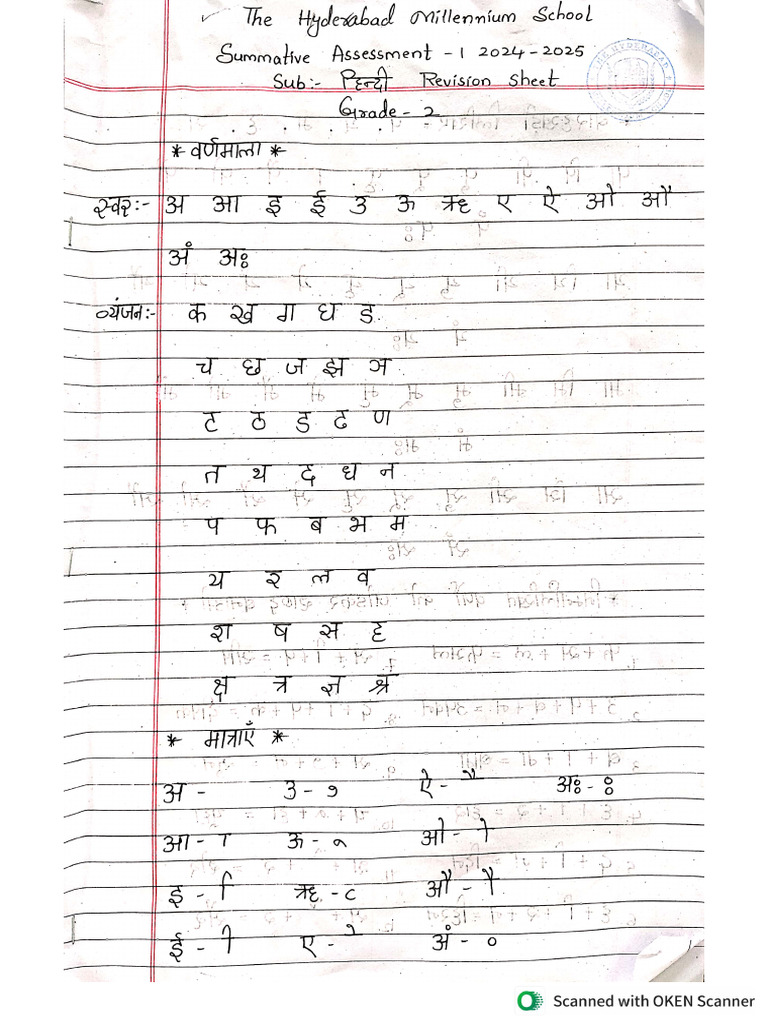 The Hyderabad Millennium School
Summative Assessment - 1 2024-2025
Sub:- हिन्दी Revision Sheet
Grade - 2
* वर्णमाला *
स्वर:- अ आ इ ई उ ऊ ऋ ए ऐ ओ औ
अं अः
व्यंजन:- क ख ग घ ड
च छ ज झ ञ
ट ठ ड ढ ण
त थ द ध न
प फ ब भ म
य र ल व
श ष स ह
क्ष त्र ज्ञ श्र
* मात्राएँ *
अ - उ - ु ऐ - ै अः - ः
आ - ा ऊ - ू ओ - ो
इ - ि ऋ - ृ औ - ौ
ई - ी ए - े अं - ं
Scanned with OKEN Scanner